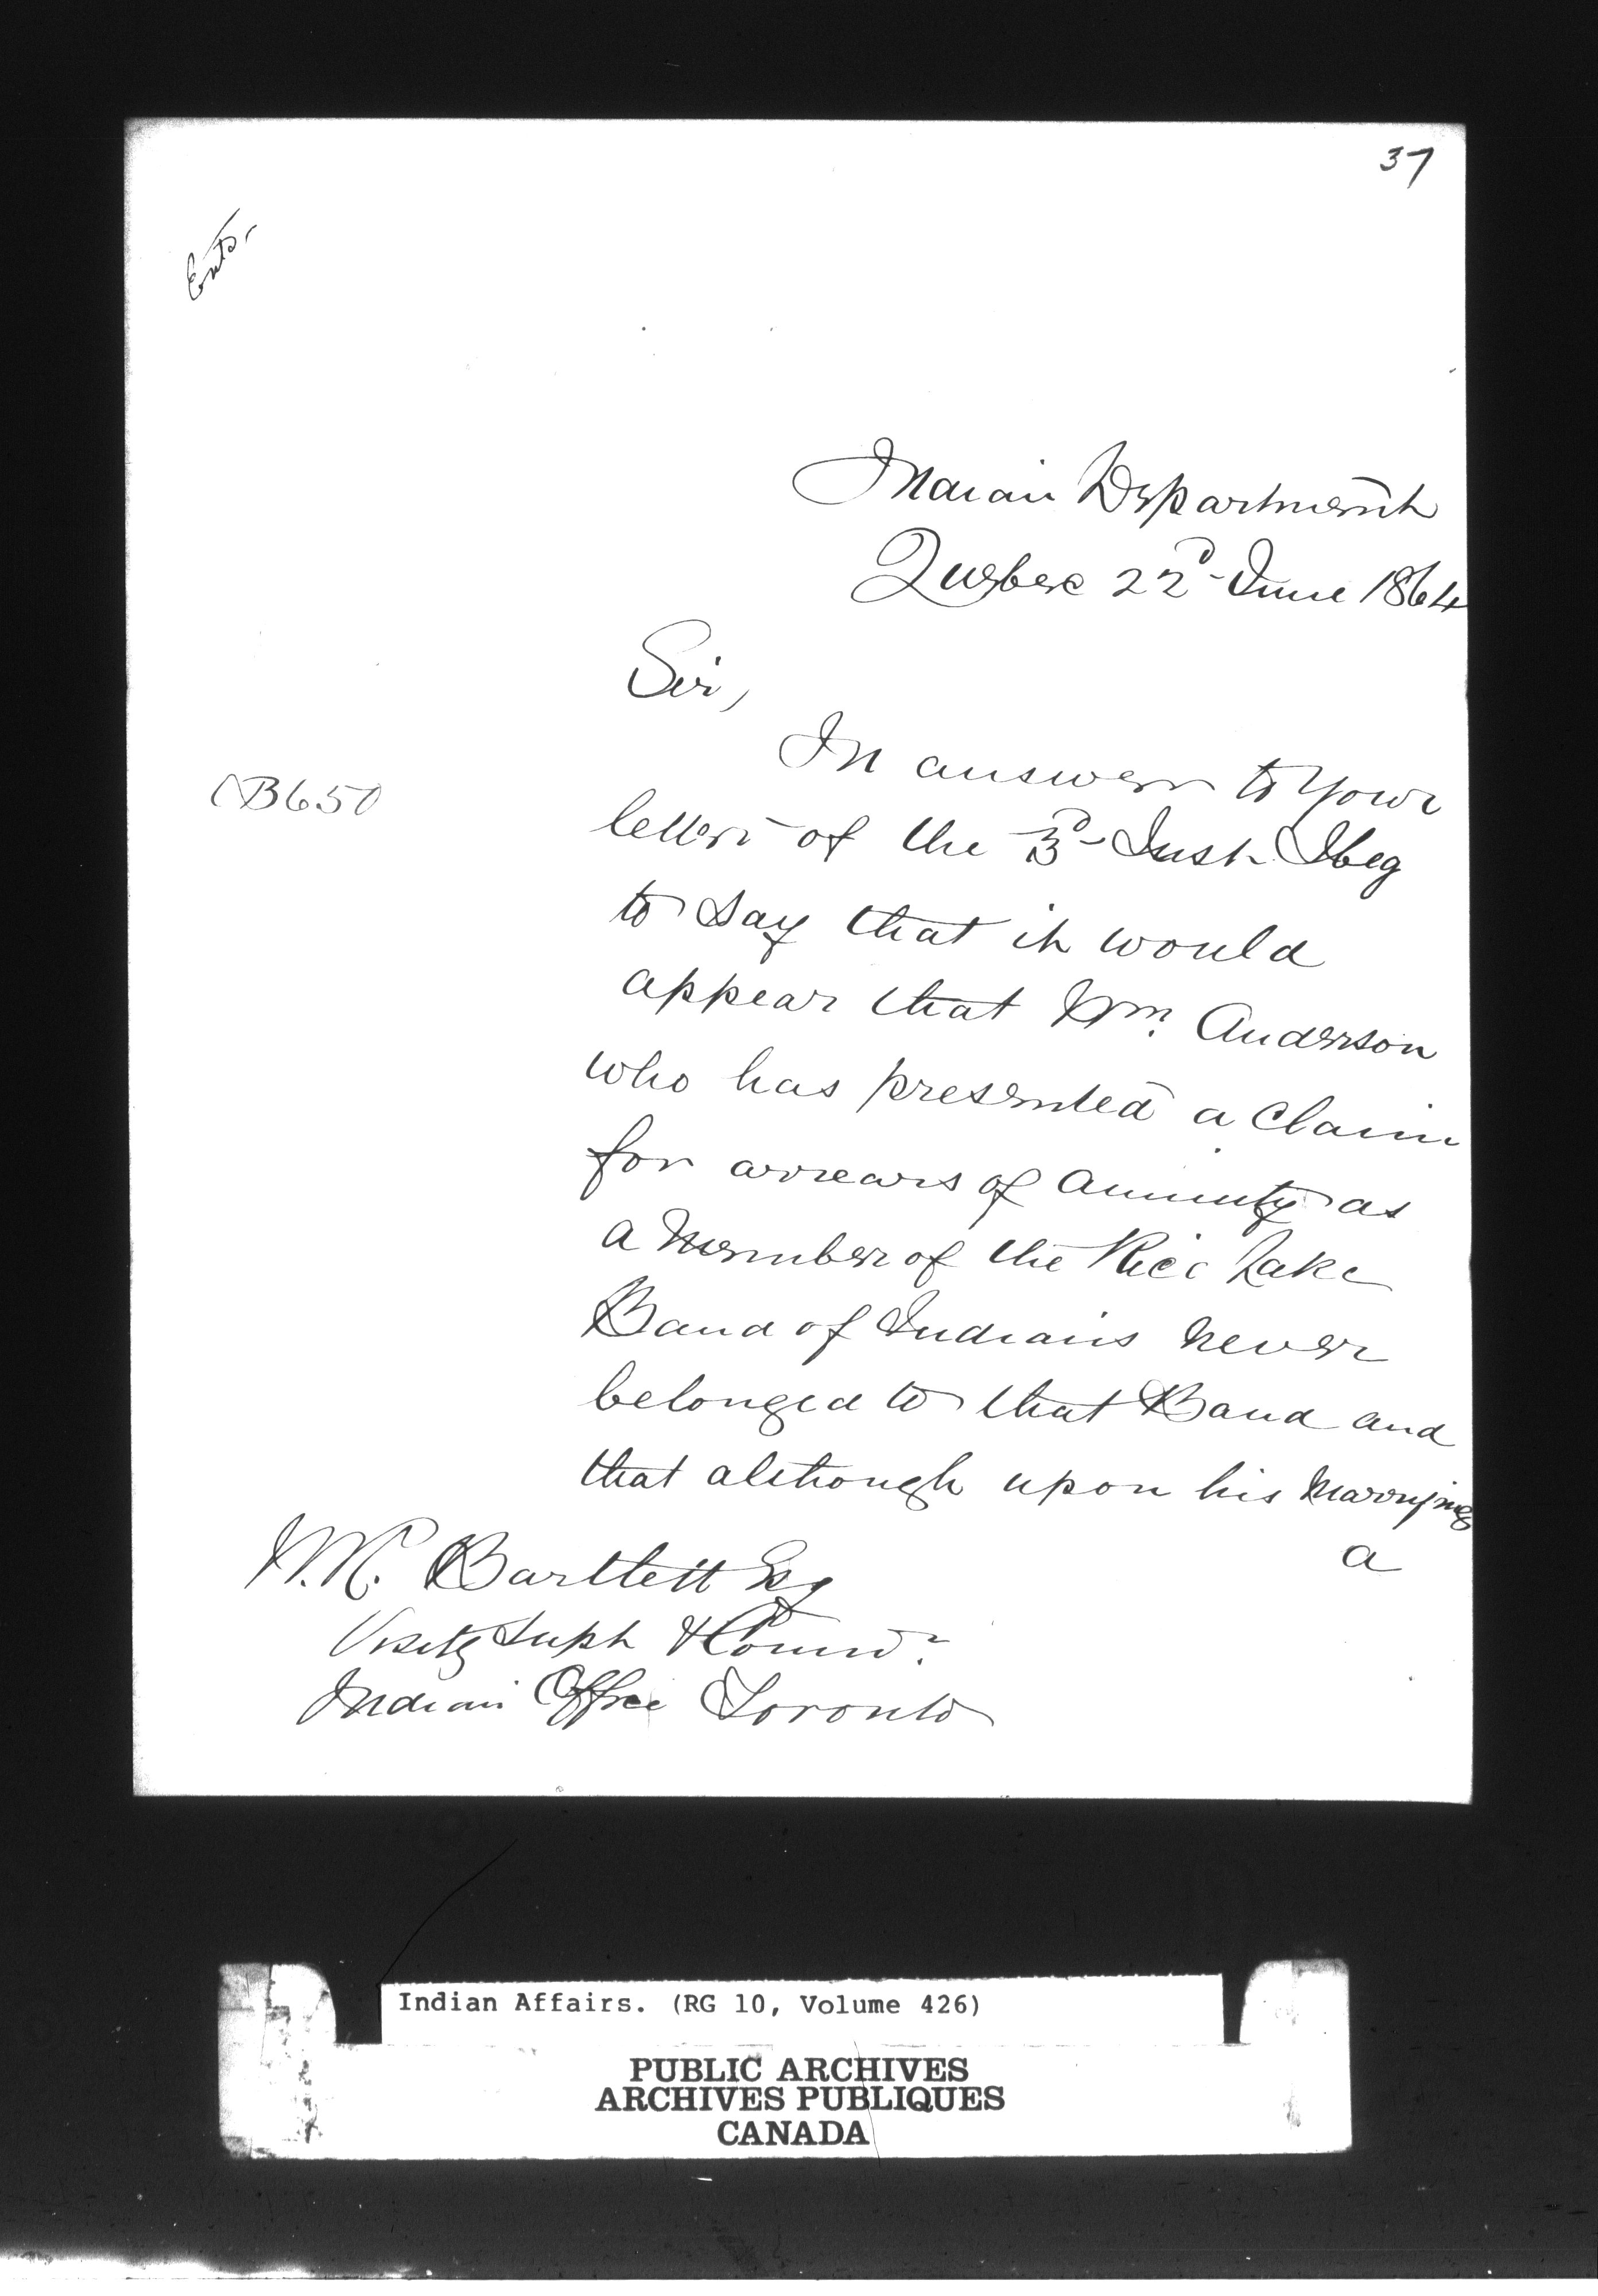 37
Entd.
Indian Department
Quebec 22d June 1864
Sir,
In answer to your
B650
letter of the 3d Inst I beg
to say that it would
appear that Wm. Anderson
who has presented a claim
for arrears of annuity as
a member of the Rice Lake
Band of Indians never
belonged to that Band and
that although upon his marrying
a
Bartlett Esq
Visitg Supt & Commr.
Indian Office Toronto
Indian Affairs. (RG 10, Volume 426)
PUBLIC ARCHIVES
ARCHIVES PUBLIQUES
CANADA